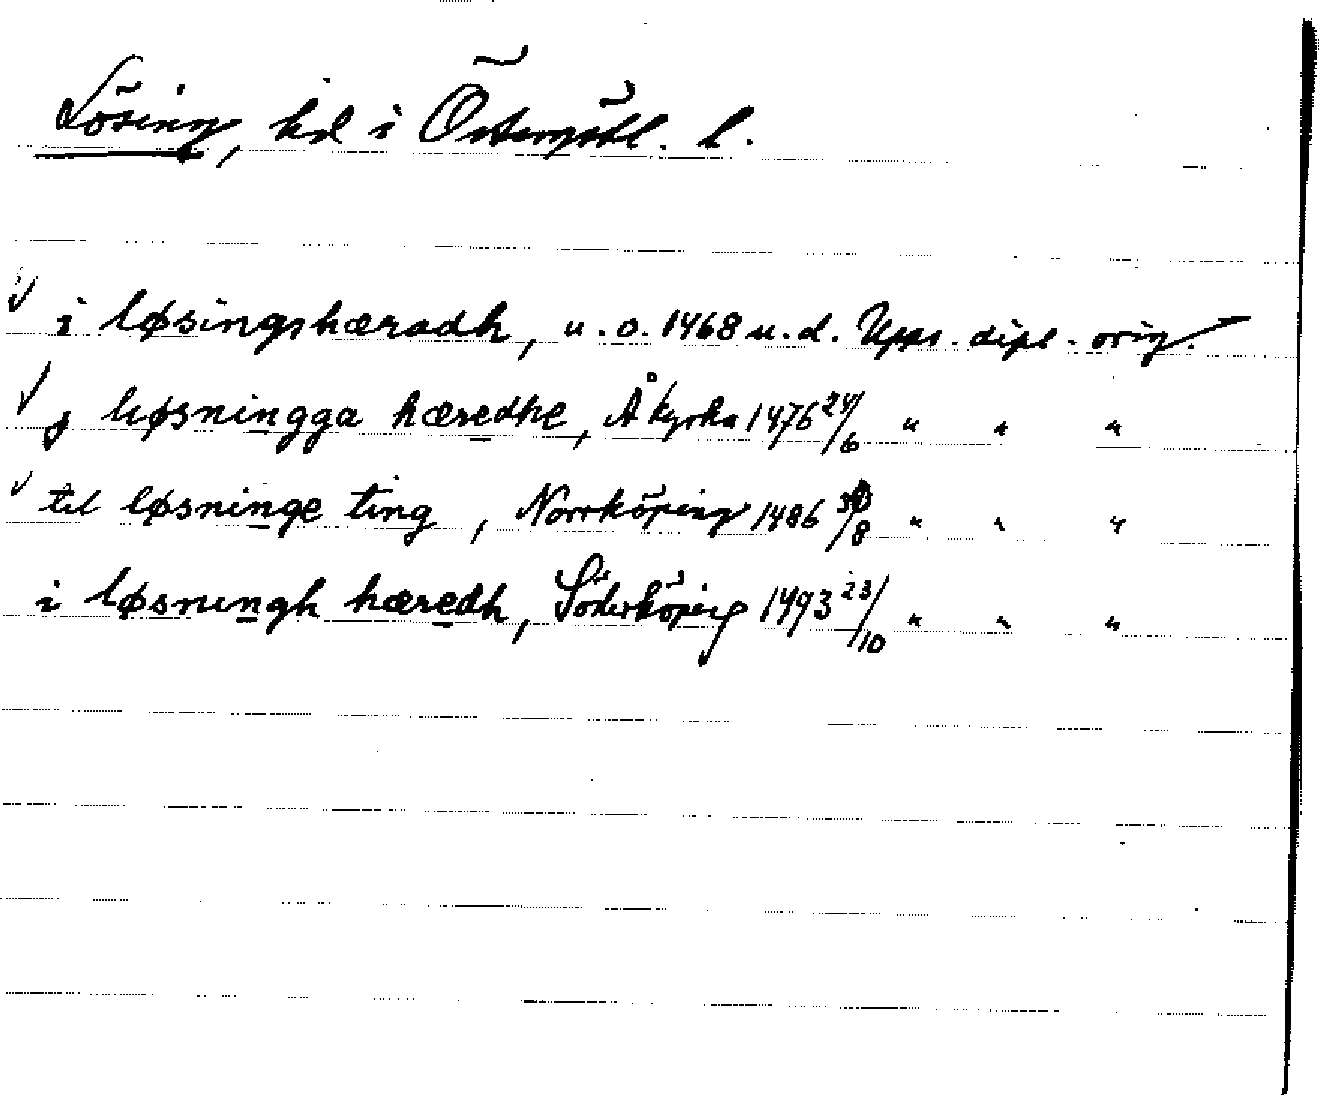 Lösing, hd i Östergötl. l.
i løsingshæradh, u.o. 1468 u.d. Upps. dipl. orig.
j løsningga hæredhe, Å kyrka 1476 24/6 " " "
til løsninge ting, Norrköping 1486 30/8 " " "
i løsningh hæredh, Söderköping 1493 23/10 " " "